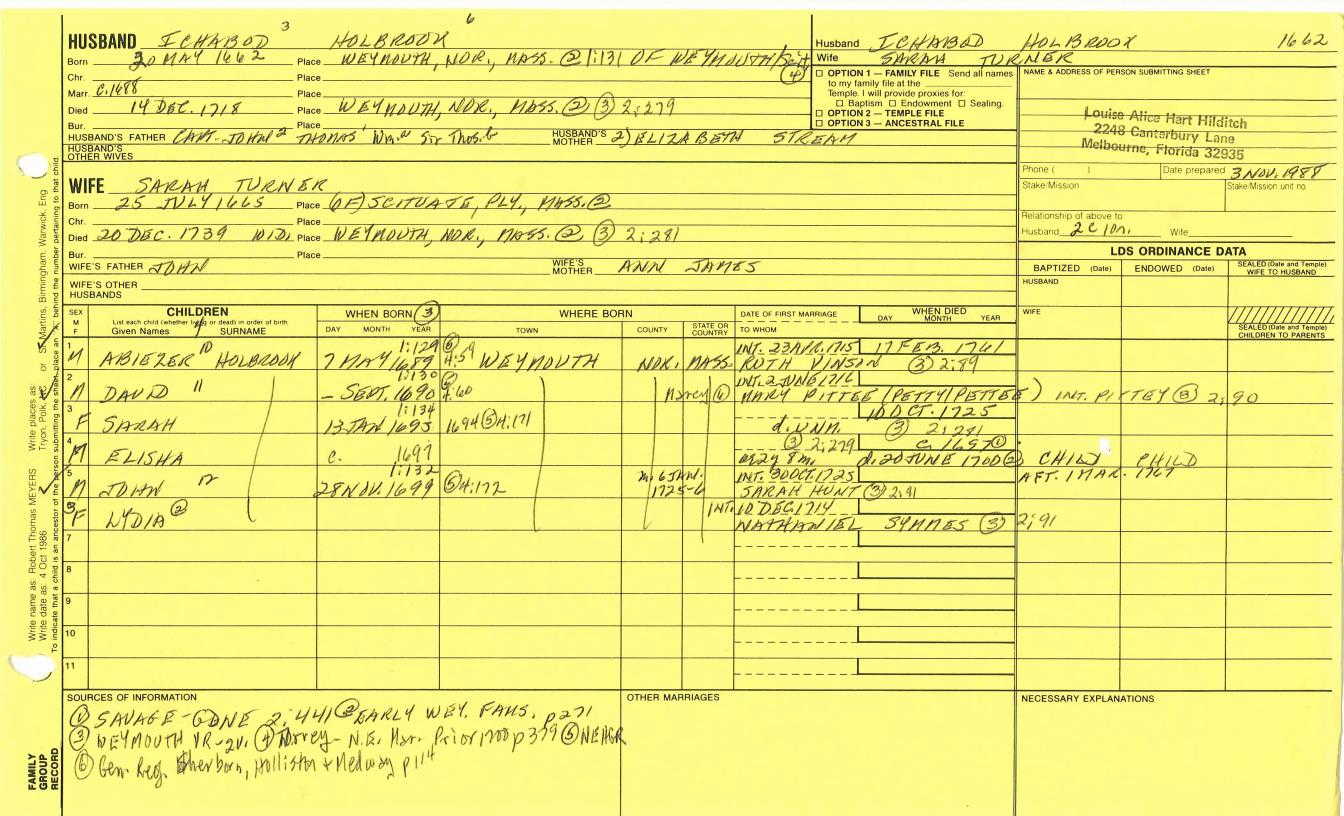 3 6
HUSBAND ICHABOD HOLBROOK
Born 20 MAY 1662 Place WEYMOUTH, NOR., MASS. @ 1:131 OF WEYMOUTH/Scit ④
Chr. Place
Marr. c.1688 Place
Died 14 DEC. 1718 Place WEYMOUTH, NOR., MASS. ② ③ 2:279
Bur. Place
HUSBAND'S FATHER CAPT. JOHN 2 THOMAS 1 Wm. a Sir Thos. b HUSBAND'S MOTHER 2) ELIZABETH STREAM
HUSBAND'S OTHER WIVES
WIFE SARAH TURNER
Born 25 JULY 1665 Place (OF) SCITUATE, PLY., MASS. ②
Chr. Place
Died 20 DEC. 1739 WID. Place WEYMOUTH, NOR., MASS. ② ③ 2:281
Bur. Place
WIFE'S FATHER JOHN WIFE'S MOTHER ANN JAMES
WIFE'S OTHER HUSBANDS
Husband ICHABOD HOLBROOK 1662
Wife SARAH TURNER
☐ OPTION 1 — FAMILY FILE Send all names
to my family file at the
Temple. I will provide proxies for:
☐ Baptism ☐ Endowment ☐ Sealing.
☐ OPTION 2 — TEMPLE FILE
☐ OPTION 3 — ANCESTRAL FILE
NAME & ADDRESS OF PERSON SUBMITTING SHEET
Louise Alice Hart Hilditch
2248 Canterbury Lane
Melbourne, Florida 32935
Phone ( ) Date prepared 3 NOV. 1988
Stake/Mission Stake/Mission unit no.
Relationship of above to
Husband 2c 10n. Wife
LDS ORDINANCE DATA
BAPTIZED (Date) ENDOWED (Date) SEALED (Date and Temple) WIFE TO HUSBAND
HUSBAND
WIFE
SEALED (Date and Temple) CHILDREN TO PARENTS
SEX M F
CHILDREN
List each child (whether living or dead) in order of birth
Given Names SURNAME
WHEN BORN ③
DAY MONTH YEAR
WHERE BORN
TOWN COUNTY STATE OR COUNTRY
DATE OF FIRST MARRIAGE
TO WHOM
WHEN DIED
DAY MONTH YEAR
1 1:129 ⑤ INT. 23 APR. 1715 17 FEB. 1761
M ABIEZER 10 HOLBROOK 7 MAY 1689 4:59 WEYMOUTH NOR. MASS. RUTH VINSON ③ 2:89
2 1:130 INT. 2 JUNE 1716
M DAVID 11 – SEPT. 1690 4:60 ⑥ MARY PITTEE (PETTY/PETTEE) INT. PITTEY ③ 2:90
3 1:134 10 OCT. 1725
F SARAH 13 JAN 1693 1694 ⑤ 4:171 d. UNM. ③ 2:281
4 1697 ③ 2:279 c. 1697 ①
M ELISHA c. a. 2y 8m. d. 20 JUNE 1700 ② CHILD CHILD
5 1:132 m. 6 JAN. INT. 30 OCT. 1725 AFT. 1 MAR. 1767
M JOHN 12 28 NOV. 1699 ⑤ 4:172 1725-6 SARAH HUNT ③ 2:91
INT. 10 DEC 1714
F LYDIA ② NATHANIEL SYMMES ③ 2:91
7
8
9
10
11
SOURCES OF INFORMATION
① SAVAGE – GDNE 2:441 ② EARLY WEY. FAMS. p 271
③ WEYMOUTH VR – 2v. ④ Torrey – N.E. Mar. Prior 1700 p 379 ⑤ NEHGR
⑥ Gen. Reg. Sherborn, Holliston & Medway p 114
OTHER MARRIAGES
NECESSARY EXPLANATIONS
FAMILY GROUP RECORD
Write name as: Robert Thomas MEYERS Write places as: Tryon, Polk, or St. Martins, Birmingham, Warwick, Eng
Write date as: 4 Oct 1986
To indicate that a child is an ancestor of the person submitting the sheet, place an X behind the number pertaining to that child.